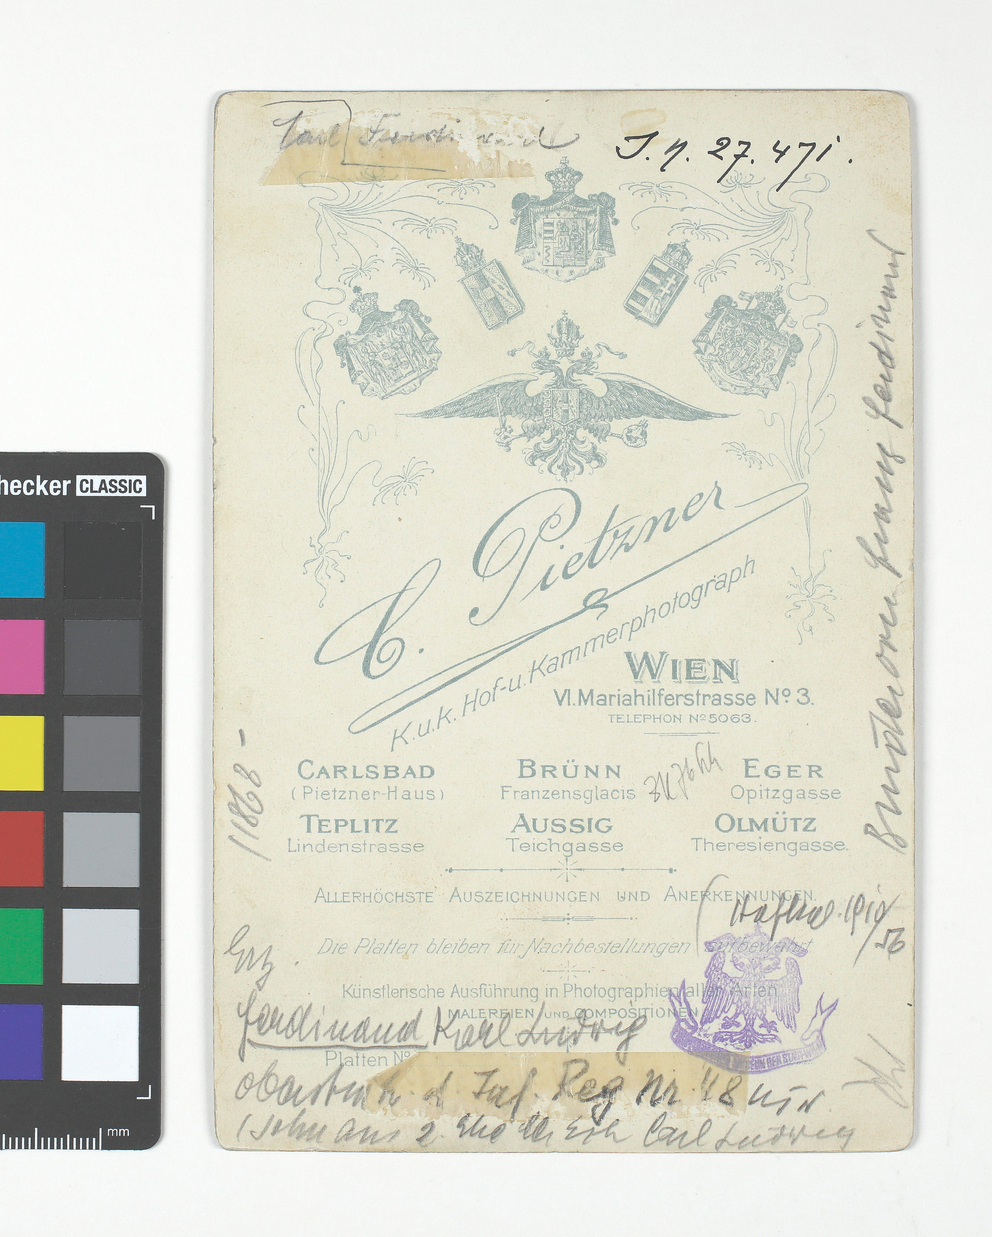 Carl Ferdinand
J. N. 27.471.
hecker CLASSIC
C. Pietzner
K.u.k. Hof-u. Kammerphotograph
WIEN
VI. Mariahilferstrasse No 3.
TELEPHON No 5063.
CARLSBAD BRÜNN EGER
(Pietzner-Haus) Franzensglacis Opitzgasse
TEPLITZ AUSSIG OLMÜTZ
Lindenstrasse Teichgasse Theresiengasse.
ALLERHÖCHSTE AUSZEICHNUNGEN UND ANERKENNUNGEN.
Die Platten bleiben für Nachbestellungen aufbewahrt
Künstlerische Ausführung in Photographien aller Arten
MALEREIEN UND COMPOSITIONEN
Platten No
Bruder von Franz Ferdinand
1868 -
Erz.
Ferdinand Karl Ludwig
d. Inf. Reg Nr. 48
(Sohn aus 2. Ehe Carl Ludwig
mm